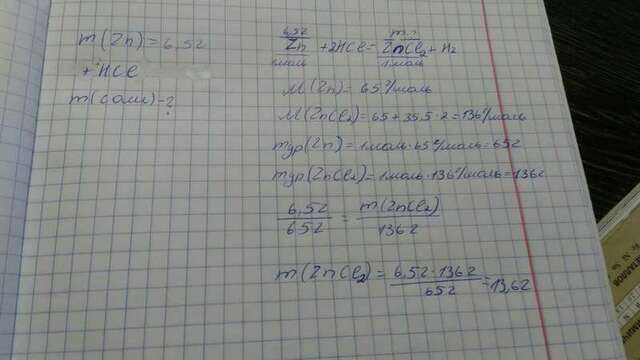 m(Zn)=6,5г
+HCl
m(соли)-?
6,5г m-?
Zn +2HCl= ZnCl₂+H₂
1моль 1моль
M(Zn)= 65г/моль
M(ZnCl₂)=65+35,5·2=136г/моль
mур(Zn)=1моль·65г/моль=65г
mур(ZnCl₂)=1моль·136г/моль=136г
6,5г/65г = m(ZnCl₂)/136г
m(ZnCl₂)= 6,5г·136г/65г =13,6г